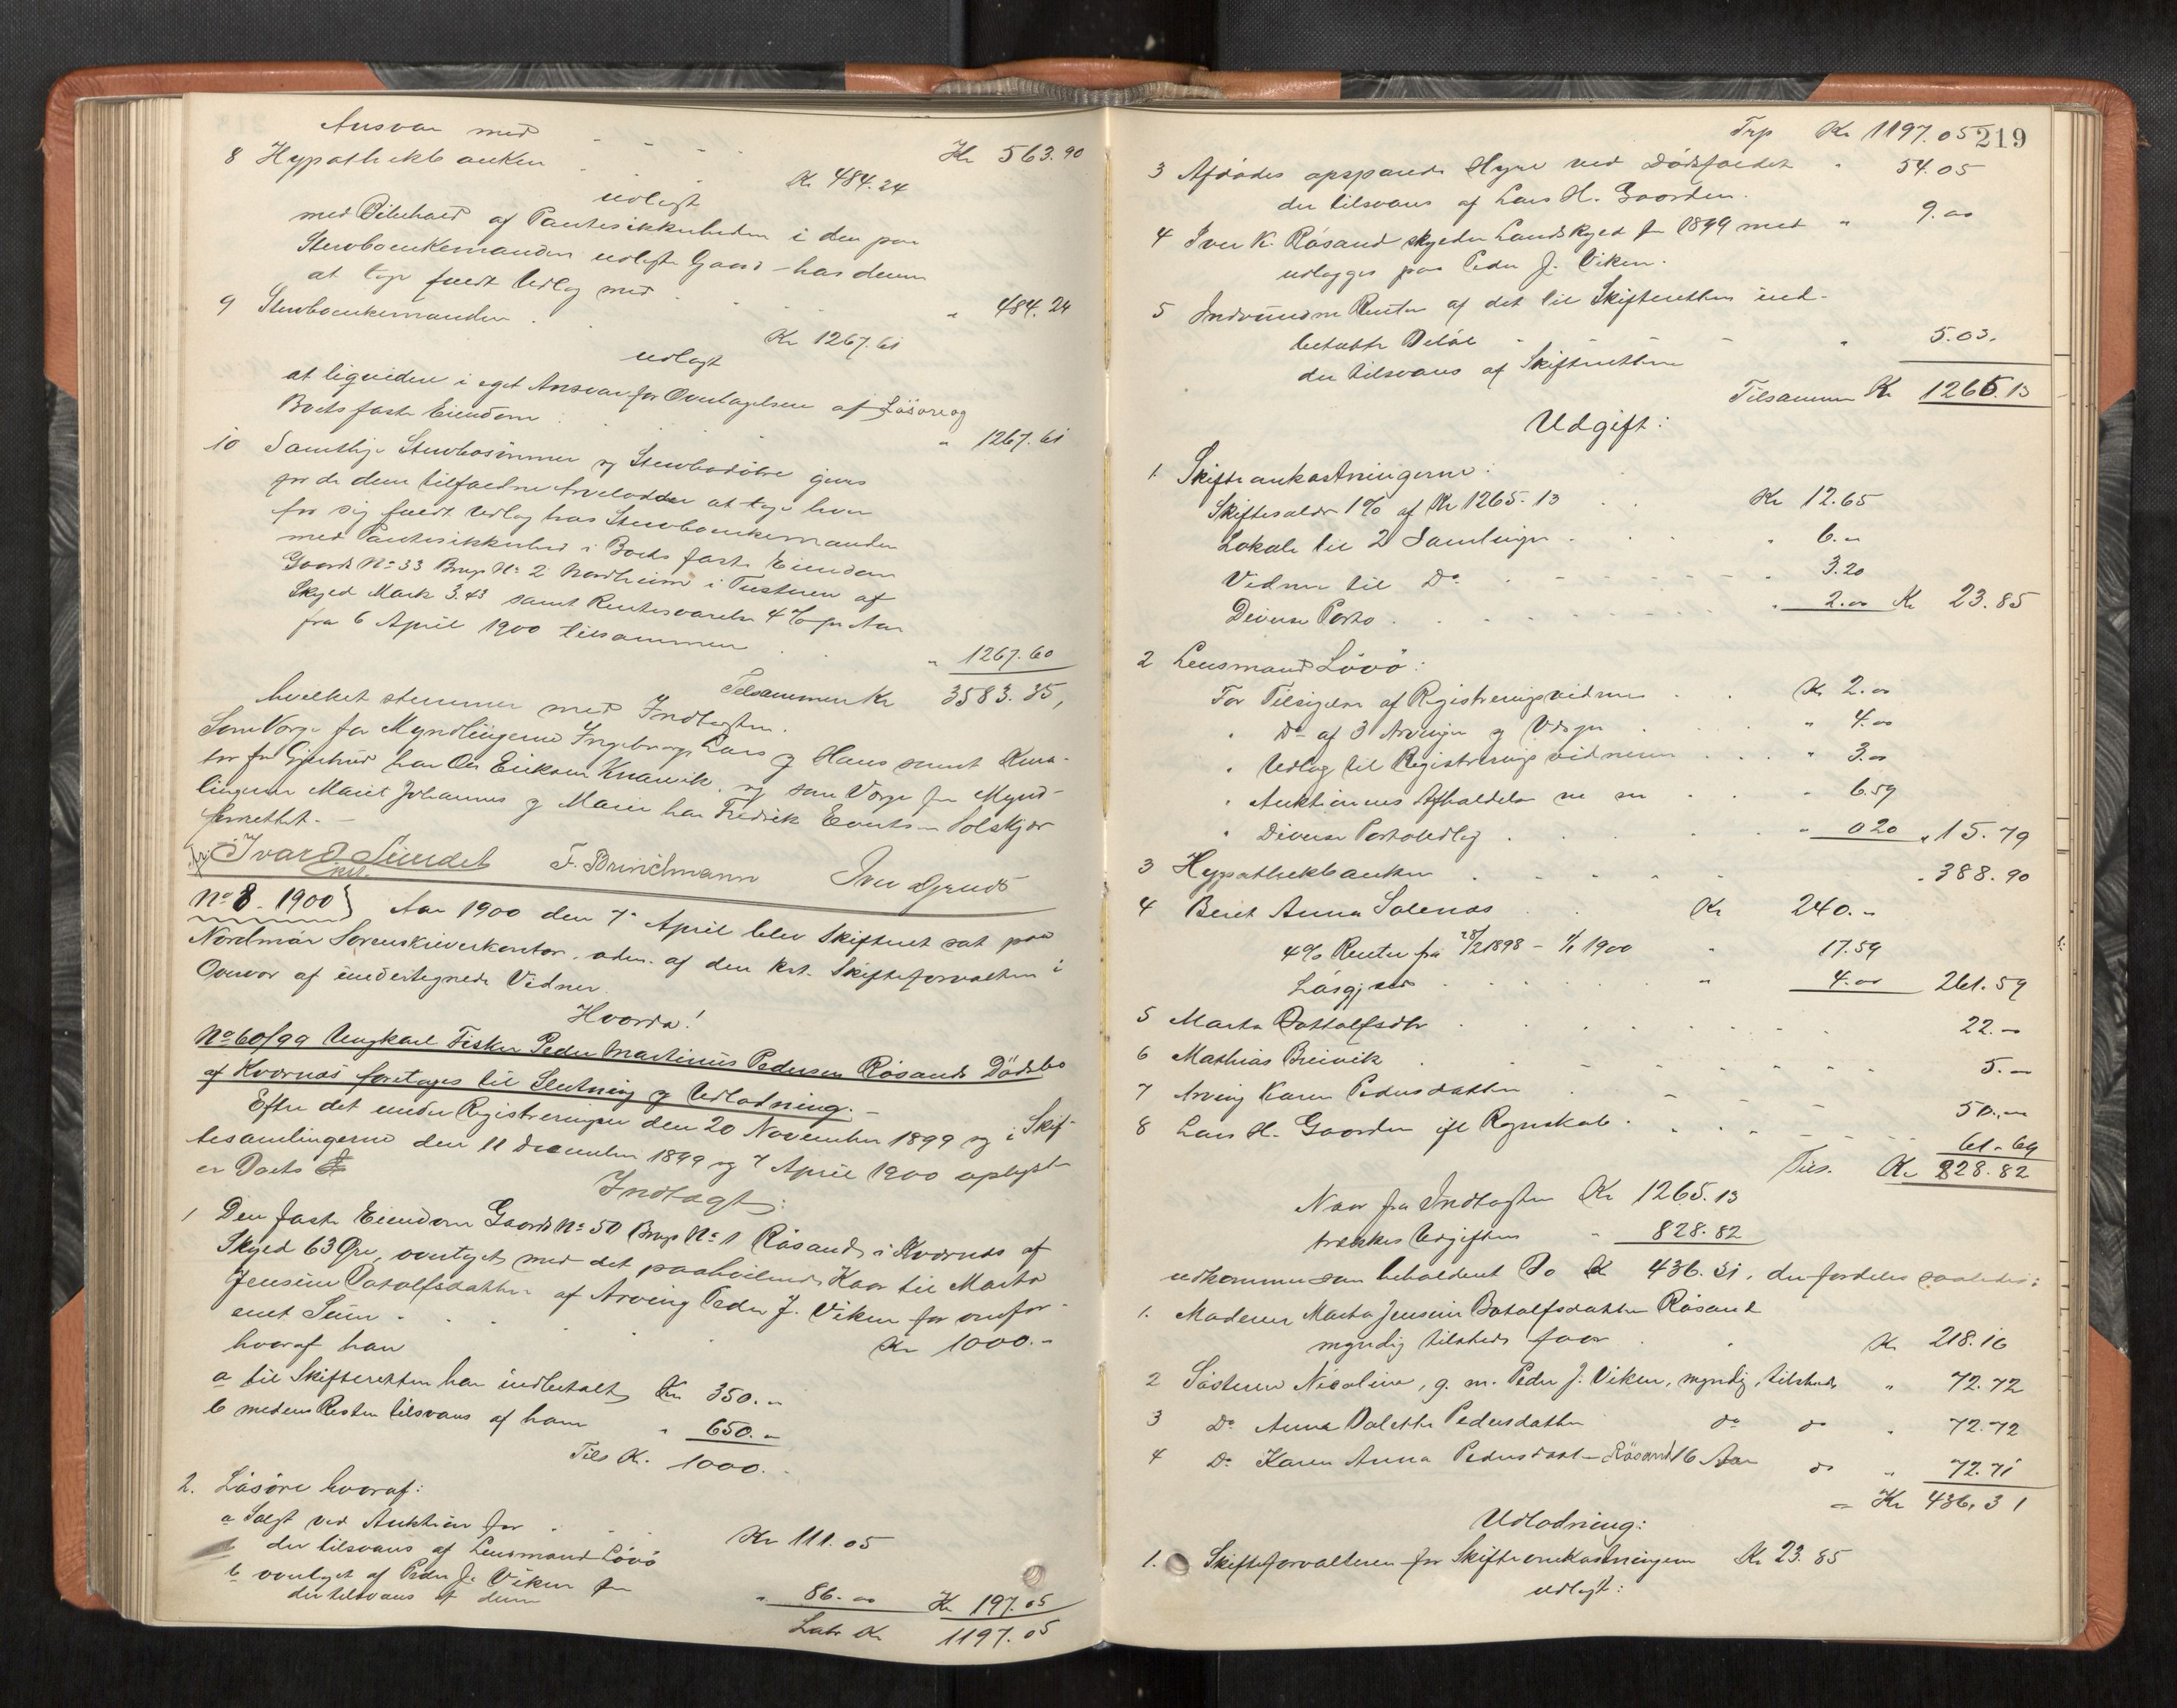 Ansvar med . . . Kr 563.90
8 Hypothekbanken . . . Kr 484.24
udlagt
med Bibehold af Pantesikkerheden i den paa
Stervboenkemanden udlagte Gaard – has denne
at tage fuldt Udlæg med . . . " 484.24
9 Stervboenkemanden . . Kr 1267.61
udlagt
at liqvidere i eget Ansvar for Overtagelsen af Løsøre og
Boets faste Eiendom . . . " 1267.61
10 Samtlige Stervbosønner og Stervbodøtre gives
for de dem tilfaldne Arvelodder at tage hver
for sig fuldt Udlæg hos Stervboenkemanden
med Pantesikkerhed i Boets faste Eiendom
Gaards No 33 Brugs No 2 Nordheim i Tusteren af
Skyld Mark 3.43 samt Rentesvarelse 4 % pr Aar
fra 6 April 1900 tilsammen . . " 1267.60
Tilsammen Kr 3583.35,
hvilket stemmer med Indtægten.
Som Værge for Myndlingerne Ingeborg, Lars og Hans samt Kura-
tor for Gjertrud har Ole Eriksen Knarvik, og som Værge for Mynd-
lingerne Marit Johannes og Marie har Fredrik Evertsen Solskjær
fremettet. –
Ivar O. Sundet F. Brinchmann Iver Gjruds
No 8. 1900} Aar 1900 den 7de April blev Skifteret sat paa
Nordmør Sorenskriverkontor, adm. af den kst. Skifteforvalter i
Overvær af undertegnede Vidner.
Hvorda!
No 60/99 Ungkarl Fisker Peder Martinus Pedersen Røsands Dødsbo
af Kvernæs foretages til Slutning og Udlodning. –
Efter det under Registreringen den 20 November 1899 og i Skif-
tesamlingerne den 11 December 1899 og 7 April 1900 oplyste
er Boets
Indtægt:
1 Den faste Eiendom Gaards No 50 Brugs No 1 Røsand i Kvernæs af
Skyld 63 Øre, overtaget med det paahvilende Kaar til Marta
Jensine Botolfsdatter af Arving Peder J. Viken for omfor-
enet Sum . . . . . Kr 1000.–
hvoraf han
a til Skifteretten har indbetalt Kr 350.–
b medens Resten tilsvares af ham " 650.–
Tils Kr. 1000.–
2. Løsøre hvoraf:
a Solgt ved Auktion for . . . Kr 111.05
der tilsvares af Lensmand Løvø
b overtaget af Peder J. Viken for " 86.00 Kr 197.05
der tilsvares af denne
Latr Kr 1197.05
Trp Kr 1197.05 219
3 Afdødes opsparede Hyre ved Dødsfaldet " 54.05
der tilsvares af Lars H. Gaarden.
4 Iver K. Røsand skylder Landskyld for 1899 med " 9.00
udlægges paa Peder J. Viken.
5 Indvundne Renter af det til Skifteretten ind-
betalte Beløb - - - " 5.03.
der tilsvares af Skifteretten
Tilsammen Kr 1265.13
Udgift:
1. Skifteomkostningerne:
Skiftesalær 1% af Kr 1265.13 . . Kr 12.65
Lokale til 2 Samlinger . . . " 6.–
Vidner til Do - - - " 3.20
Diverse Porto . . . " 2.00 Kr 23.85
2 Lensmand Løvø:
For Tilsigelse af Registreringsvidner . . Kr 2.00
" Do af 3 Arvinger og Værger . . " 4.00
" Udlæg til Registreringsvidnerne . . . " 3.00
" Auktionens Afholdelse m m . . " 6.59
" Diverse Portoudlæg . . . " 0 20 " 15.79
3 Hypothekbanken . . . . " 388.90
4 Berit Anna Solenæs . . Kr 240.–
4% Renter fra 28/2 1898 – 1/1 1900 " 17.59
Løsgjæld . . . " 4.00 261.59
5 Marta Botolfsdtr . . . 22.–
6 Mathias Breivik . . . 5.–
7 Arving Karen Pedersdatter . . . 50.–
8 Lars H. Gaarden ifl Regnskab . . . 61.69
Tils. Kr 828.82
Naar fra Indtægten Kr 1265.13
trækkes Udgiften " 828.82
udkommer som beholdent Bo Kr 436.31, der fordeles saaledes:
1. Moderen Marta Jensine Botolfsdatter Røsand
myndig tilstede faar . . Kr 218.16
2 Søsteren Nicoline, g. m. Peder J. Viken, myndig, tilstede " 72.72
3 Do Anna Dolette Pedersdatter do do " 72.72
4 Do Karen Anna Pedersdatt- Røsand 16 Aar do " 72.71
= Kr 436.31
Udlodning:
1. Skifteforvalteren for Skifteomkostningerne Kr 23.85
udlagt: